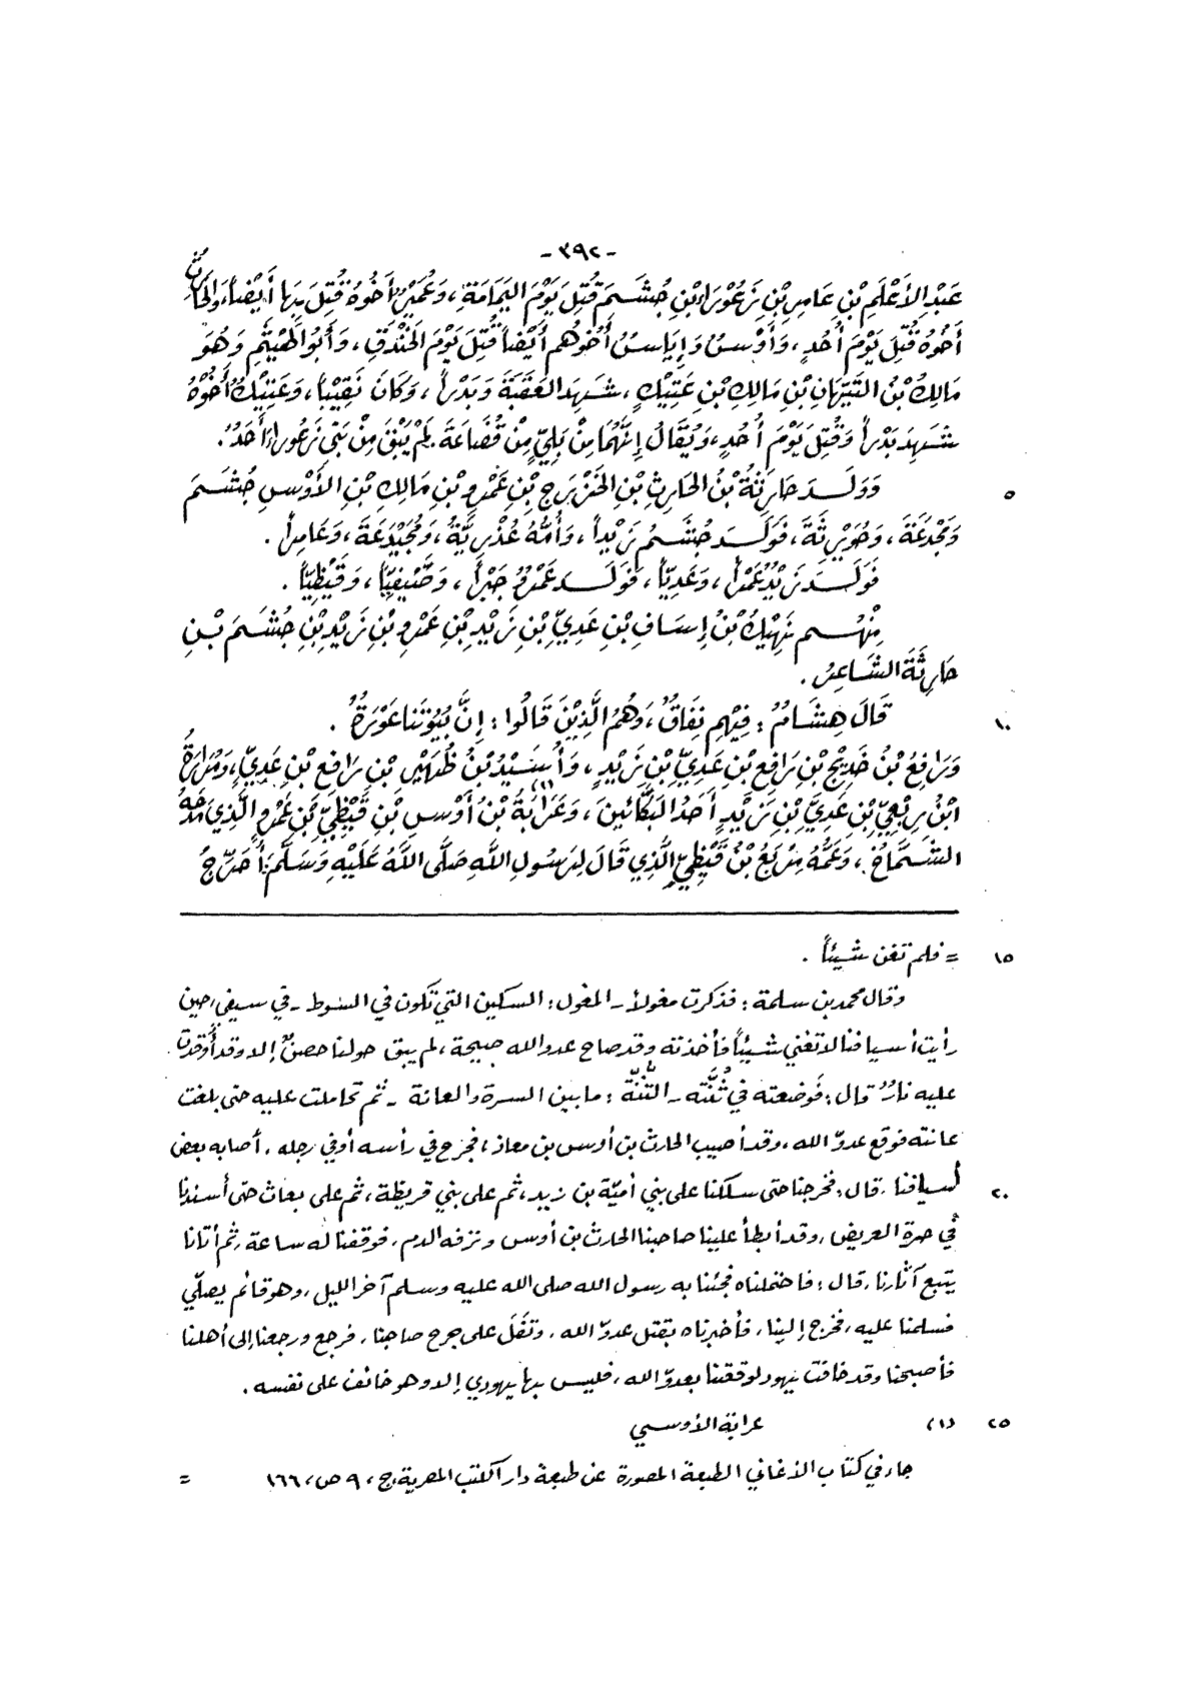 -٣٩٢-
عَبْدِ الأَعْلَمِ بْنِ عَامِرِ بْنِ زَعُوْرَاءَ بْنِ جُشَمَ قُتِلَ يَوْمَ اليَمَامَةِ، وَعُمَيْرٌ أَخُوهُ قُتِلَ بِهَا أَيْضاً، وَالحَارِثُ
أَخُوهُ قُتِلَ يَوْمَ أُحُدٍ، وَأَوْسُ وَإِيَاسُ أَخُوْهُم أَيْضاً قُتِلَ يَوْمَ الخَنْدَقِ، وَأَبُو الهَيْثَمِ وَهُوَ
مَالِكُ بْنُ التَّيِّهَانِ بْنِ مَالِكِ بْنِ عَتِيْكٍ، شَهِدَ العَقَبَةَ وَبَدْراً، وَكَانَ نَقِيْباً، وَعَتِيْكٌ أَخُوْهُ
شَهِدَ بَدْراً وَقُتِلَ يَوْمَ أُحُدٍ، وَيُقَالُ إِنَّهُمَا مِنْ بَلِيٍّ مِنْ قُضَاعَةَ. لَمْ يَبْقَ مِنْ بَنِي زَعُورَاءَ أَحَدٌ.
٥ وَوَلَدَ حَارِثَةُ بْنُ الحَارِثِ بْنِ الخَزْرَجِ بْنِ عَمْرِو بْنِ مَالِكِ بْنِ الأَوْسِ جُشَمَ
وَمَجْدَعَةَ، وَحُوَيْرِثَةَ، فَوَلَدَ جُشَمُ زَيْداً، وَأُمُّهُ عُذْرِيَّةٌ، وَمُجَيْدِعَةَ، وَعَامِراً.
فَوَلَدَ زَيْدٌ عَمْراً، وَعَدِيّاً، فَوَلَدَ عَمْرٌو جَبْراً، وَصَيْفِيّاً، وَقَيْظِيّاً.
مِنْهُم نَهِيْكُ بْنُ إِسَافِ بْنِ عَدِيِّ بْنِ زَيْدِ بْنِ عَمْرِو بْنِ زَيْدِ بْنِ جُشَمَ بْنِ
حَارِثَةَ الشَّاعِرُ.
١٠ قَالَ هِشَامٌ: فِيْهِم نِفَاقٌ، وَهُمُ الَّذِيْنَ قَالُوا: إِنَّ بُيُوْتَنَا عَوْرَةٌ.
وَرَافِعُ بْنُ خَدِيْجِ بْنِ رَافِعِ بْنِ عَدِيِّ بْنِ زَيْدٍ، وَأُسَيْدُ بْنُ ظُهَيْرِ بْنِ رَافِعِ بْنِ عَدِيٍّ، وَمُرَارَةُ
ابْنُ رِبْعِيِّ بْنِ عَدِيِّ بْنِ زَيْدٍ أَحَدُ البَكَّائِينَ، وَعَرَابَةُ (١) بْنُ أَوْسِ بْنِ قَيْظِيِّ بْنِ عَمْرٍو الَّذِي مَدَحَهُ
الشَّمَّاخُ، وَعَمُّهُ مِرْبَعُ بْنُ قَيْظِيٍّ الَّذِي قَالَ لِرَسُولِ اللَّهِ صَلَّى اللَّهُ عَلَيْهِ وَسَلَّمَ: أُحَرِّجُ
١٥ = فلم تغن شيئاً.
وقال محمد بن سلمة: فذكرت مغولاً - المغول: السكين التي تكون في السوط - في سيفي، حين
رأيت أسيافنا لا تغني شيئاً فأخذته وقد صاح عدو الله صيحة، لم يبق حولنا حصنٌ إلا وقد أُوقدت
عليه نارٌ قال: فَوضعته في ثُنَّته - الثُّنَّة: ما بين السرة والعانة - ثم تحاملت عليه حتى بلغت
عانته فوقع عدوّ الله، وقد أصيب الحارث بن أوس بن معاذ، فجرح في رأسه أو في رجله، أصابه بعض
أسيافنا. قال: فخرجنا حتى سلكنا على بني أميّة بن زيد، ثم على بني قريظة، ثم على بعاث حتى أسندنا ٢٠
في حرة العريض، وقد أبطأ علينا صاحبنا الحارث بن أوس ونزفه الدم، فوقفنا له ساعة، ثم أتانا
يتبع آثارنا، قال: فاحتملناه فجئنا به رسول الله صلى الله عليه وسلم آخر الليل، وهو قائم يصلّي
فسلمنا عليه، فخرج إلينا، فأخبرناه بقتل عدوّ الله، وتفَلَ على جرح صاحبنا، فرجع ورجعنا إلى أهلنا
فأصبحنا وقد خافت يهود لوقعتنا بعدوّ الله، فليس بها يهودي إلا وهو خائف على نفسه.
٢٥ (١) عرابة الأوسي
جاء في كتاب الأغاني الطبعة المصورة عن طبعة دار الكتب المصرية، ج، ٩ ص، ١٦٦ =